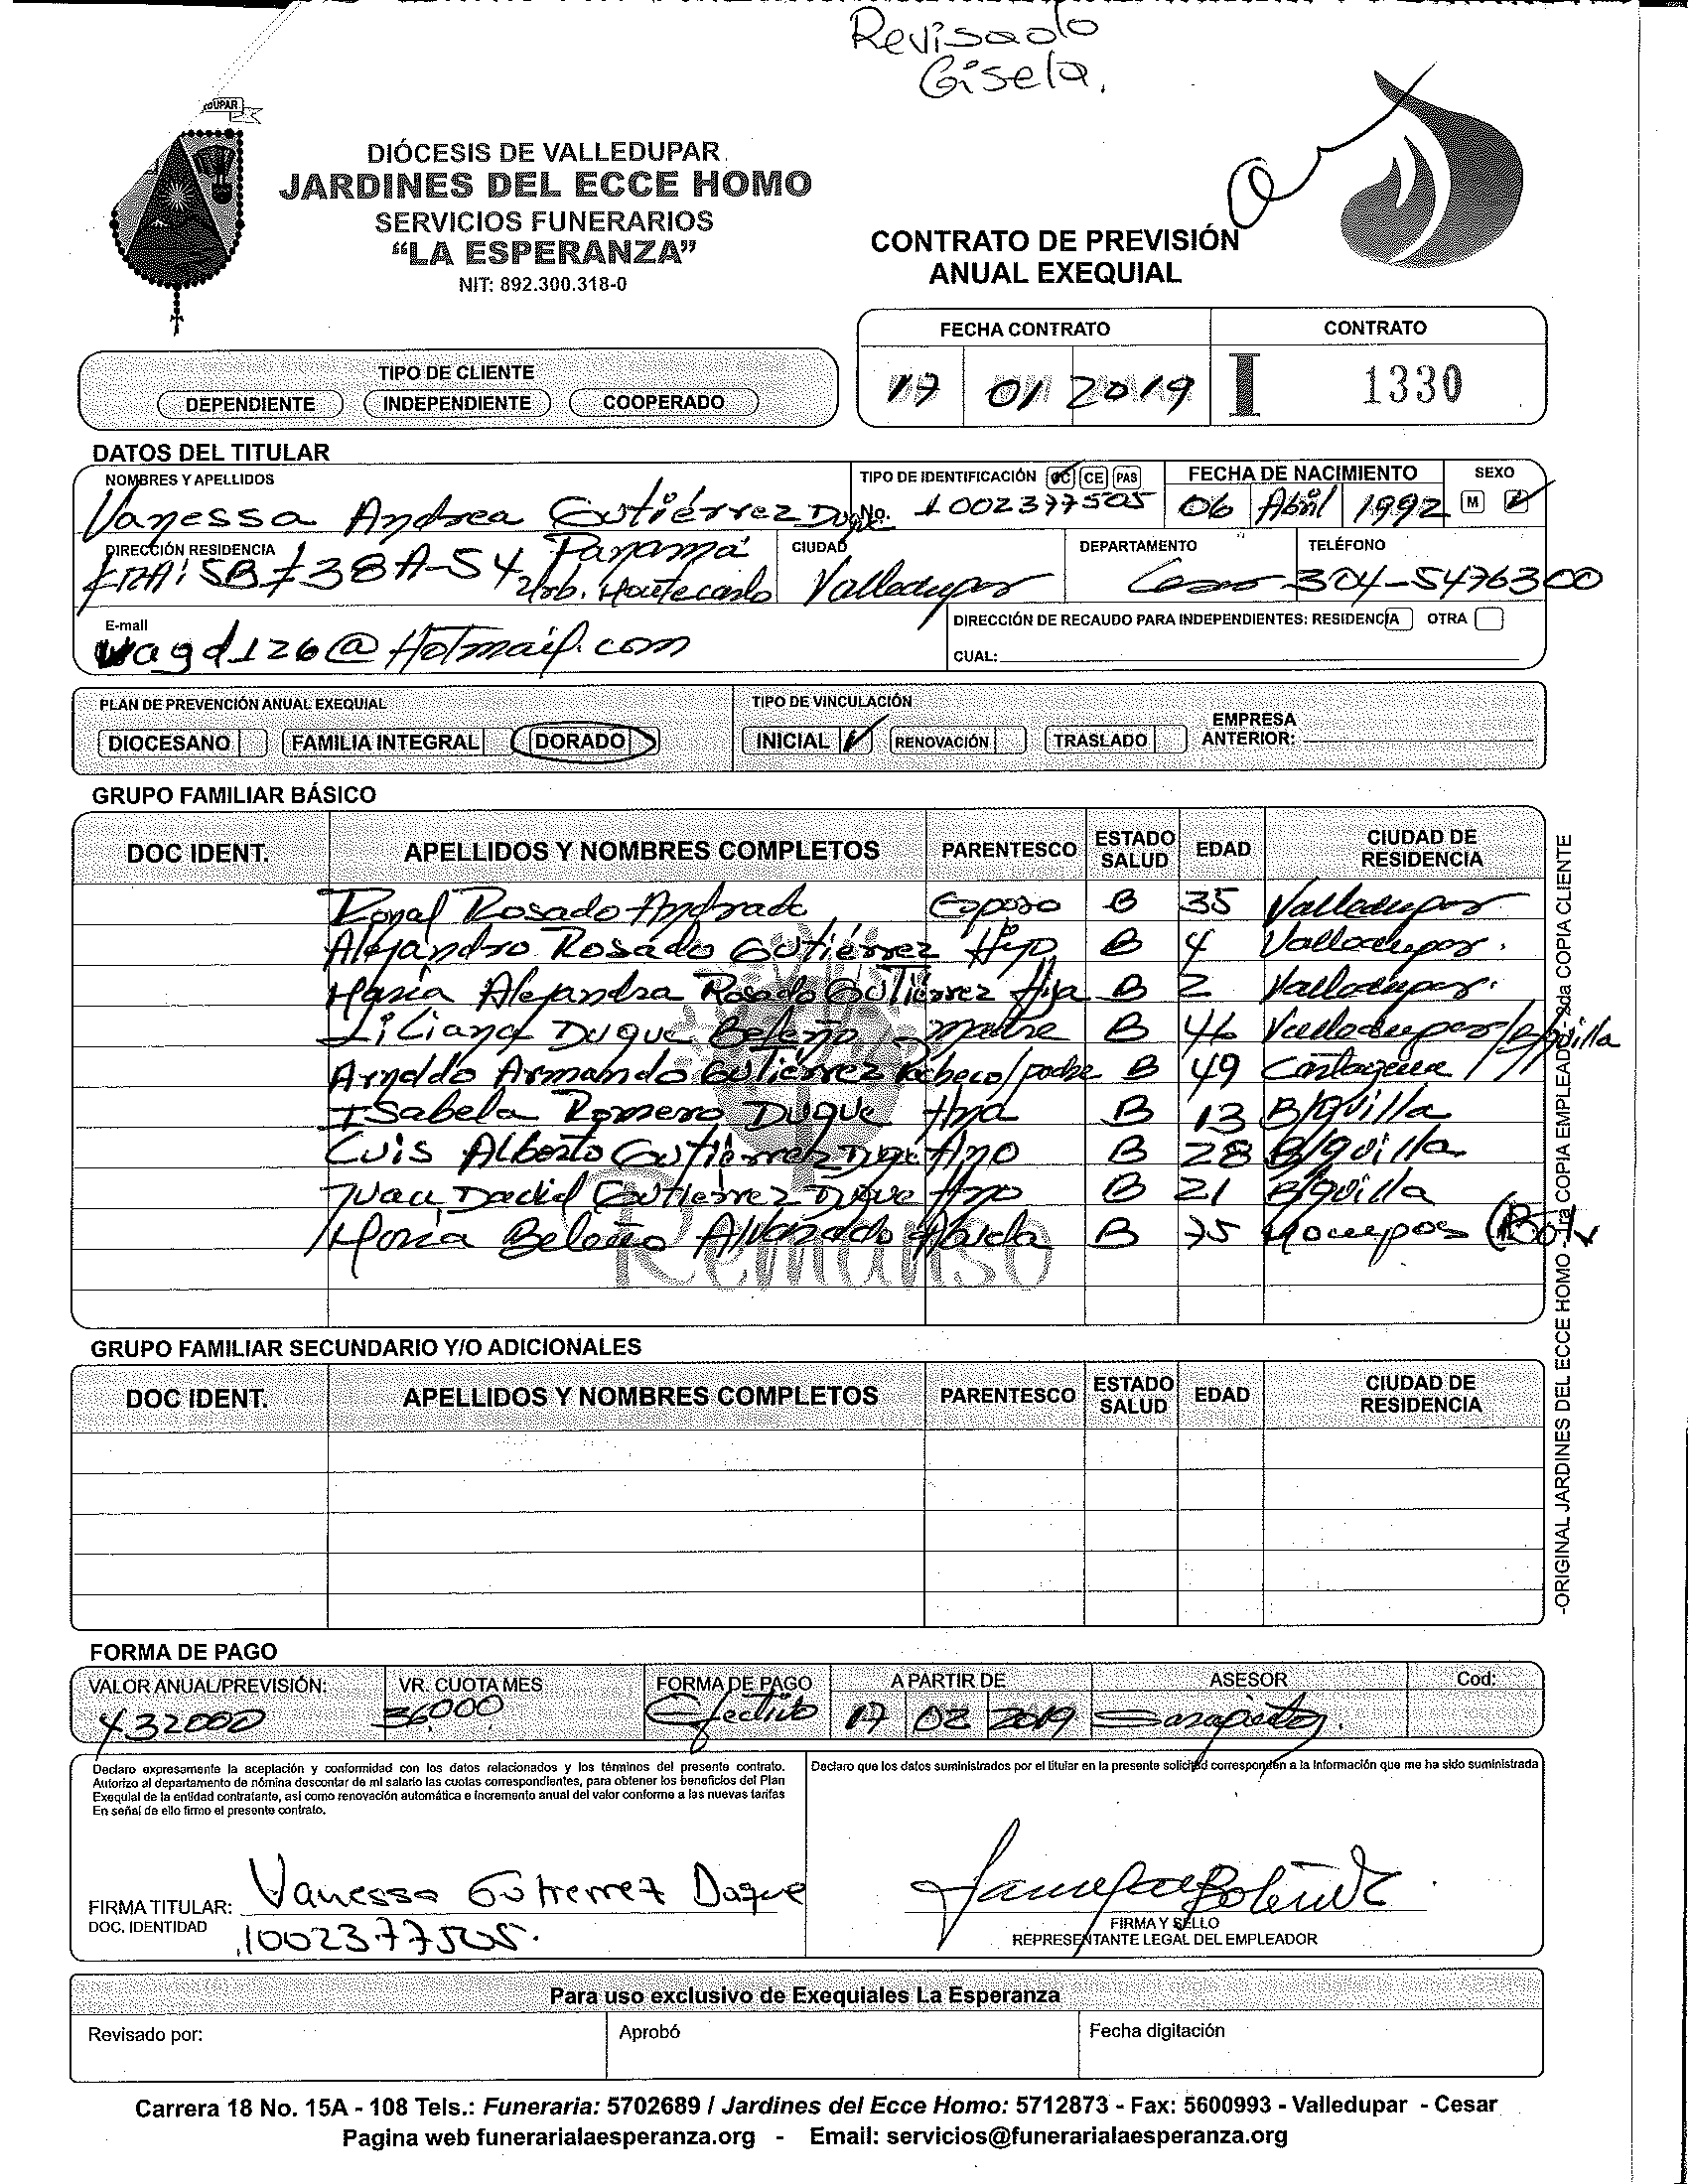 Revisado
Gisela.
DUPAR
DIÓCESIS DE VALLEDUPAR
JARDINES DEL ECCE HOMO
SERVICIOS FUNERARIOS
“LA ESPERANZA”
NIT: 892.300.318-0
CONTRATO DE PREVISIÓN
ANUAL EXEQUIAL
FECHA CONTRATO CONTRATO
17 01 2019 I 1330
TIPO DE CLIENTE
DEPENDIENTE INDEPENDIENTE COOPERADO
DATOS DEL TITULAR
NOMBRES Y APELLIDOS TIPO DE IDENTIFICACIÓN CC CE PAS FECHA DE NACIMIENTO SEXO
Vanessa Andrea Gutiérrez Duque No. 1002377505 06 Abril 1992 M
DIRECCIÓN RESIDENCIA CIUDAD DEPARTAMENTO TELÉFONO
38A-54 Panamá
Urb. Montecarlo Valledupar Cesar 304-5476300
E-mail DIRECCIÓN DE RECAUDO PARA INDEPENDIENTES: RESIDENCIA OTRA
vagd126@Hotmail.com
CUAL:
PLAN DE PREVENCIÓN ANUAL EXEQUIAL TIPO DE VINCULACIÓN
DIOCESANO FAMILIA INTEGRAL DORADO INICIAL RENOVACIÓN TRASLADO EMPRESA ANTERIOR:
GRUPO FAMILIAR BÁSICO
DOC IDENT. APELLIDOS Y NOMBRES COMPLETOS PARENTESCO ESTADO SALUD EDAD CIUDAD DE RESIDENCIA
Ronal Rosado Andrade Esposo B 35 Valledupar
Alejandro Rosado Gutiérrez Hijo B 4 Valledupar.
María Alejandra Rosado Gutiérrez Hija B 2 Valledupar.
Liliana Duque Beleño madre B 46 Valledupar/B/quilla
Arnoldo Armando Gutiérrez Pacheco/padre B 49 Cartagena
Isabela Romero Duque Hna B 13 B/quilla
Luis Alberto Gutiérrez Duque Hno B 28 B/quilla
Juan David Gutierrez Duque Hno B 21 B/quilla
María Beleño Alvarado Abuela B 75 Mompos (Boliv
Remanso
GRUPO FAMILIAR SECUNDARIO Y/O ADICIONALES
DOC IDENT. APELLIDOS Y NOMBRES COMPLETOS PARENTESCO ESTADO SALUD EDAD CIUDAD DE RESIDENCIA
-ORIGINAL JARDINES DEL ECCE HOMO - 1ra COPIA EMPLEAD - 2da COPIA CLIENTE
FORMA DE PAGO
VALOR ANUAL/PREVISIÓN: VR. CUOTA MES FORMA DE PAGO A PARTIR DE ASESOR Cod:
432000 36000 Efectivo 17 02 2019
Declaro expresamente la aceptación y conformidad con los datos relacionados y los términos del presente contrato.
Autorizo al departamento de nómina descontar de mi salario las cuotas correspondientes, para obtener los beneficios del Plan
Exequial de la entidad contratante, asi como renovación automática e incremento anual del valor conforme a las nuevas tarifas
En señal de ello firmo el presente contrato.
Declaro que los datos suministrados por el titular en la presente solicitud corresponden a la información que me ha sido suministrada
FIRMA TITULAR: Vanessa Gutierrez Duque
DOC. IDENTIDAD 1002377505.
FIRMA Y SELLO
REPRESENTANTE LEGAL DEL EMPLEADOR
Para uso exclusivo de Exequiales La Esperanza
Revisado por: Aprobó Fecha digitación
Carrera 18 No. 15A - 108 Tels.: Funeraria: 5702689 / Jardines del Ecce Homo: 5712873 - Fax: 5600993 - Valledupar - Cesar
Pagina web funerarialaesperanza.org - Email: servicios@funerarialaesperanza.org